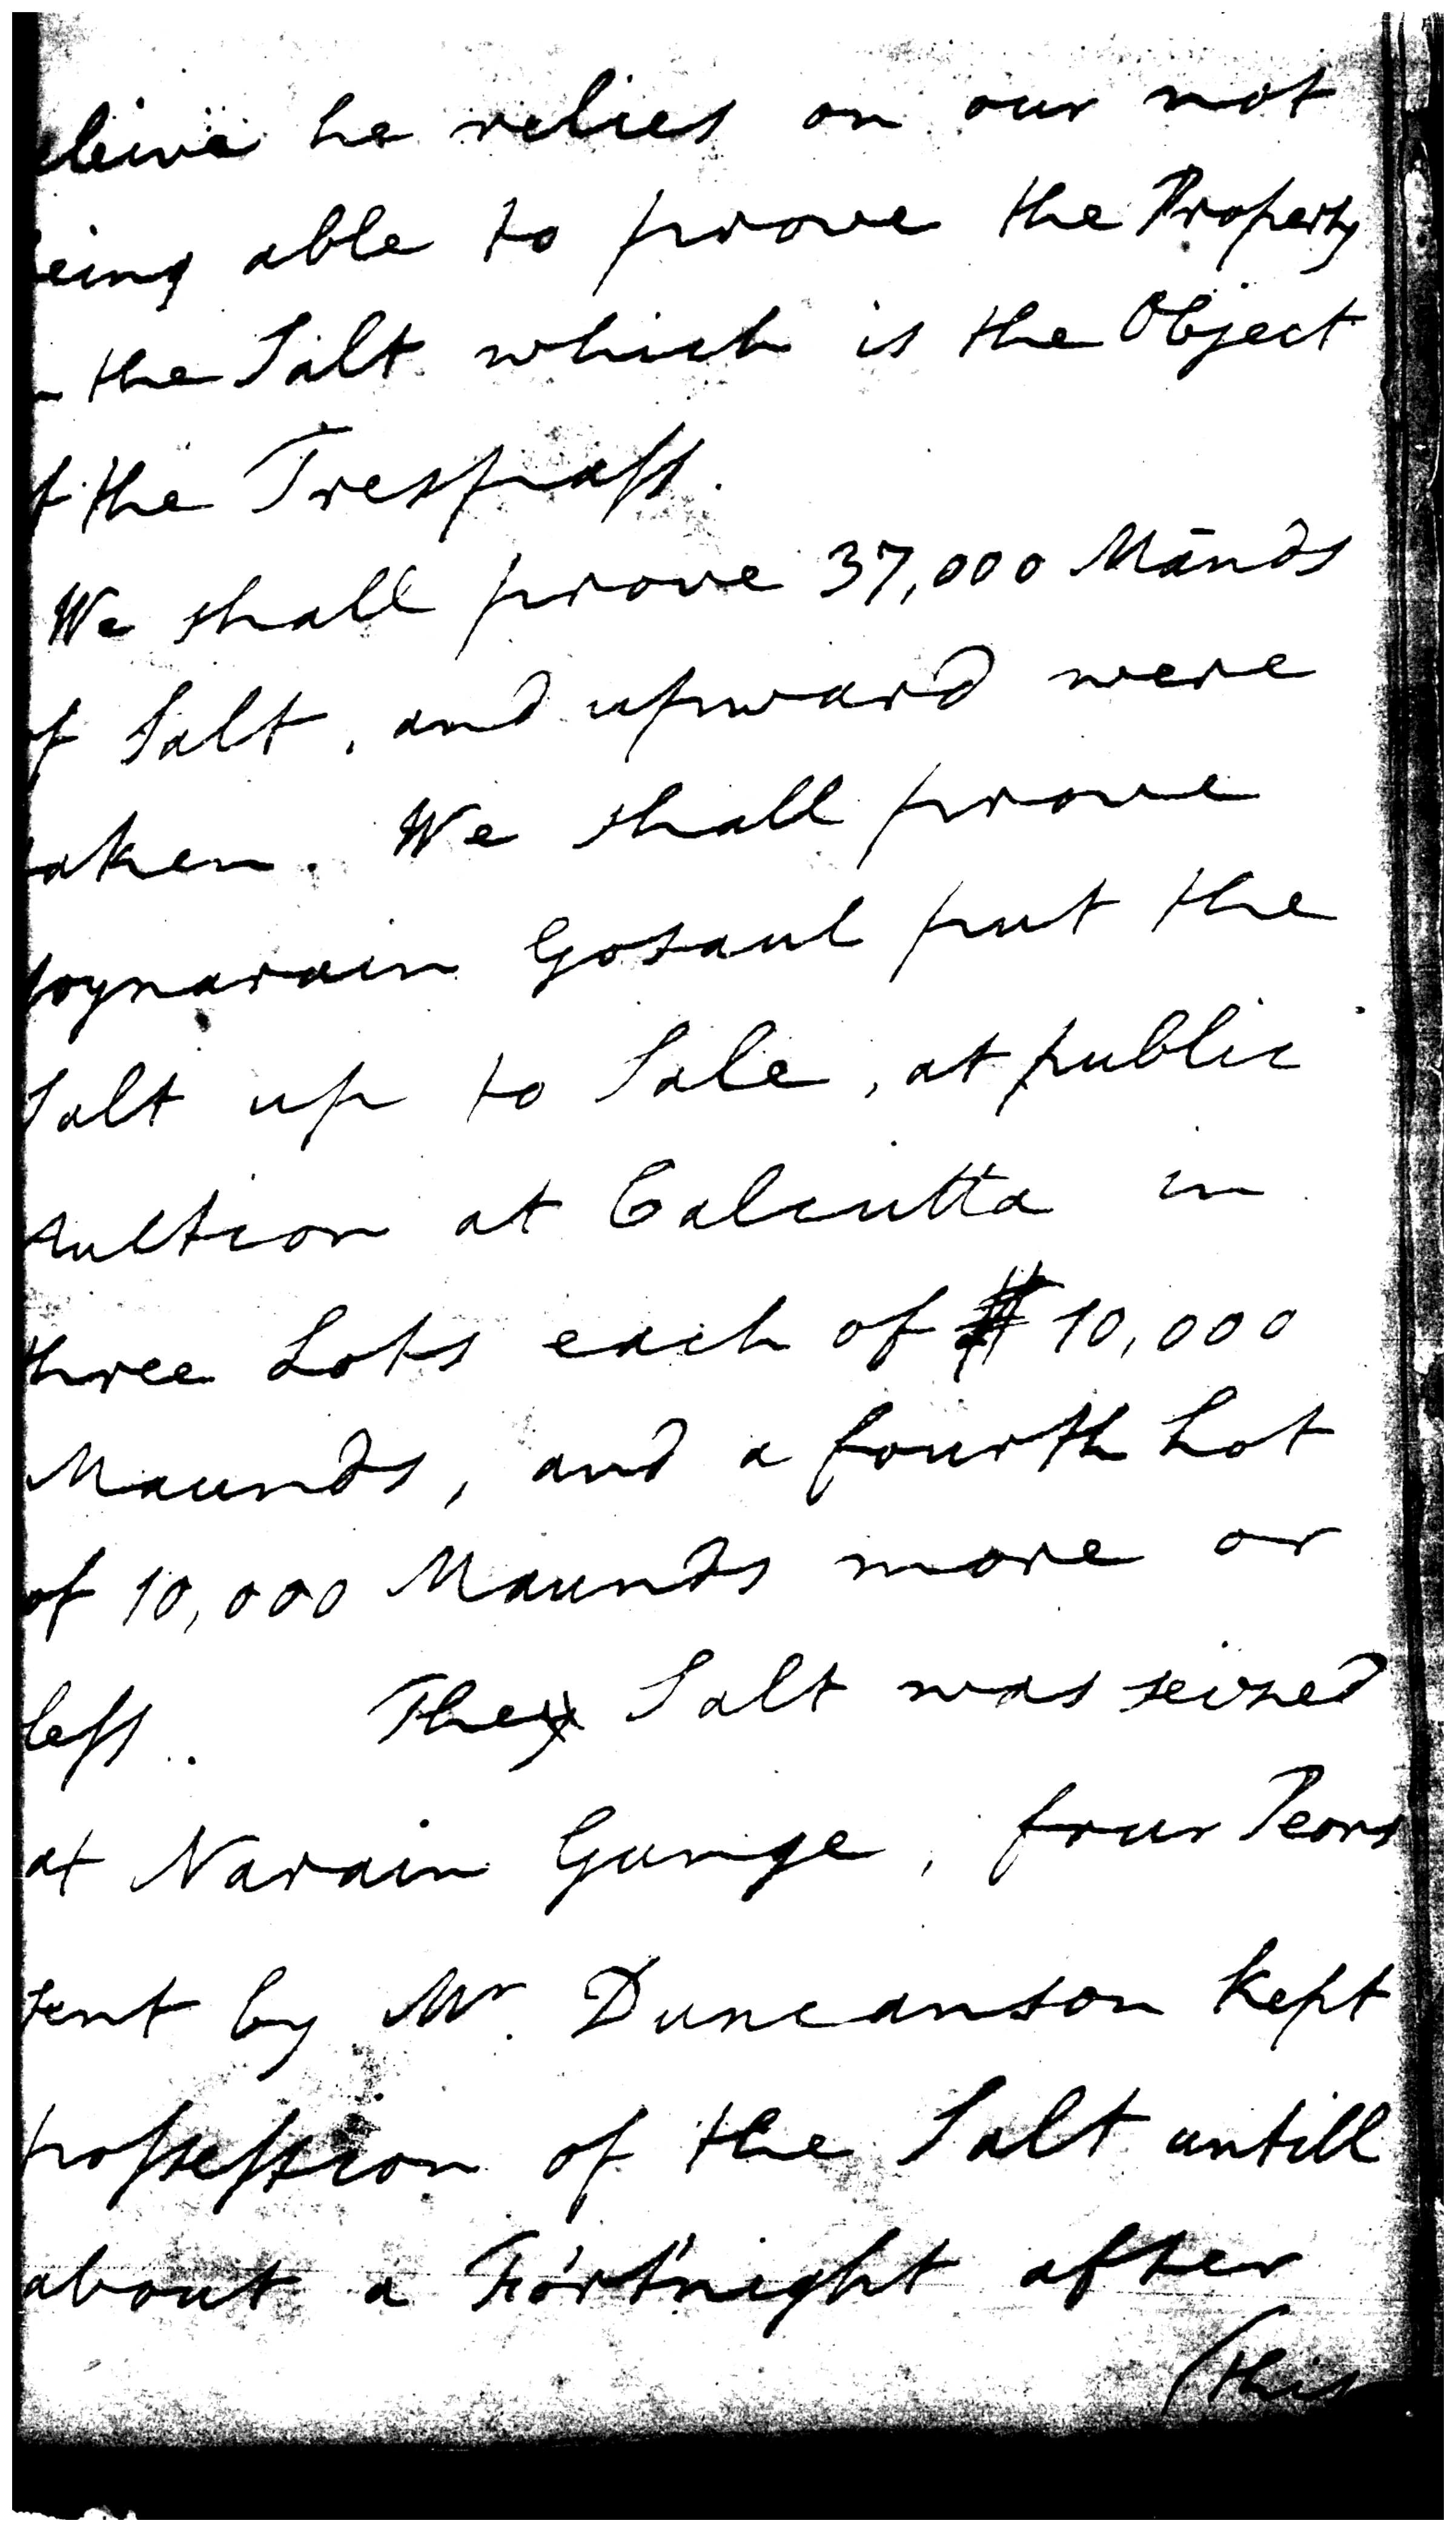 eleive he relies on our not
being able to prove the Property
n the Salt which is the Object
f the Trespass.
We shall prove 37,000 Mānds
of Salt, and upward were
taken. We shall prove
Joynarain Gosaul put the
Salt up to Sale, at public
Auction at Calcutta in
three Lots each of 10,000
Maunds, and a fourth Lot
of 10,000 Maunds more or
less. The Salt was seized
at Narain Gunge, four Peons
sent by Mr. Duncanson kept
possession of the Salt untill
about a Fortnight after
(this